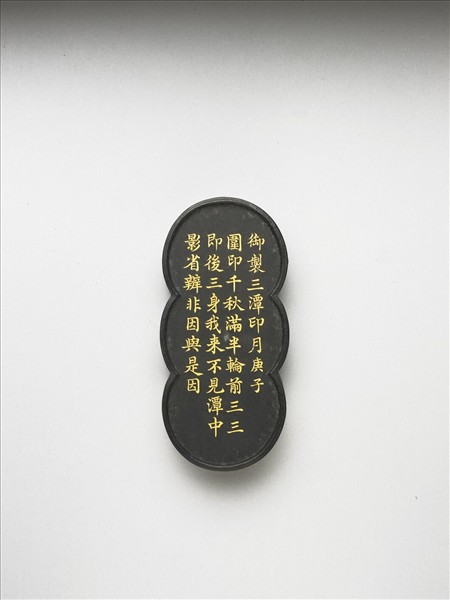 御製三潭印月庚子
圍印千秋滿半輪前三三
即後三身我來不見潭中
影省辧非因與是因